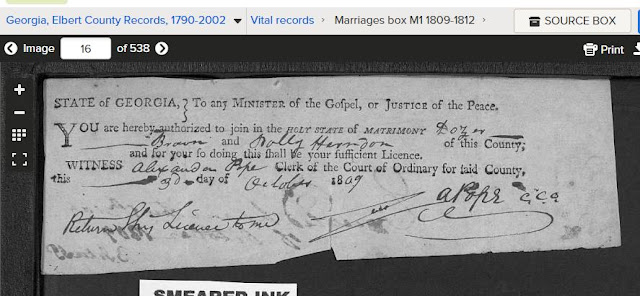 Georgia, Elbert County Records, 1790-2002 Vital records › Marriages box M1 1809-1812 › SOURCE BOX
Image 16 of 538 Print
STATE of GEORGIA, } To any MINISTER of the Gospel, or JUSTICE of the Peace.
YOU are hereby authorized to join in the HOLY STATE of MATRIMONY Dozer
Brown and Polly Herndon of this County;
and for your so doing this shall be your sufficient Licence.
WITNESS Alexander Pope Clerk of the Court of Ordinary for said County,
this 3d day of October 1809
A Pope CCO
Return this Licence to me
SMEARED INK